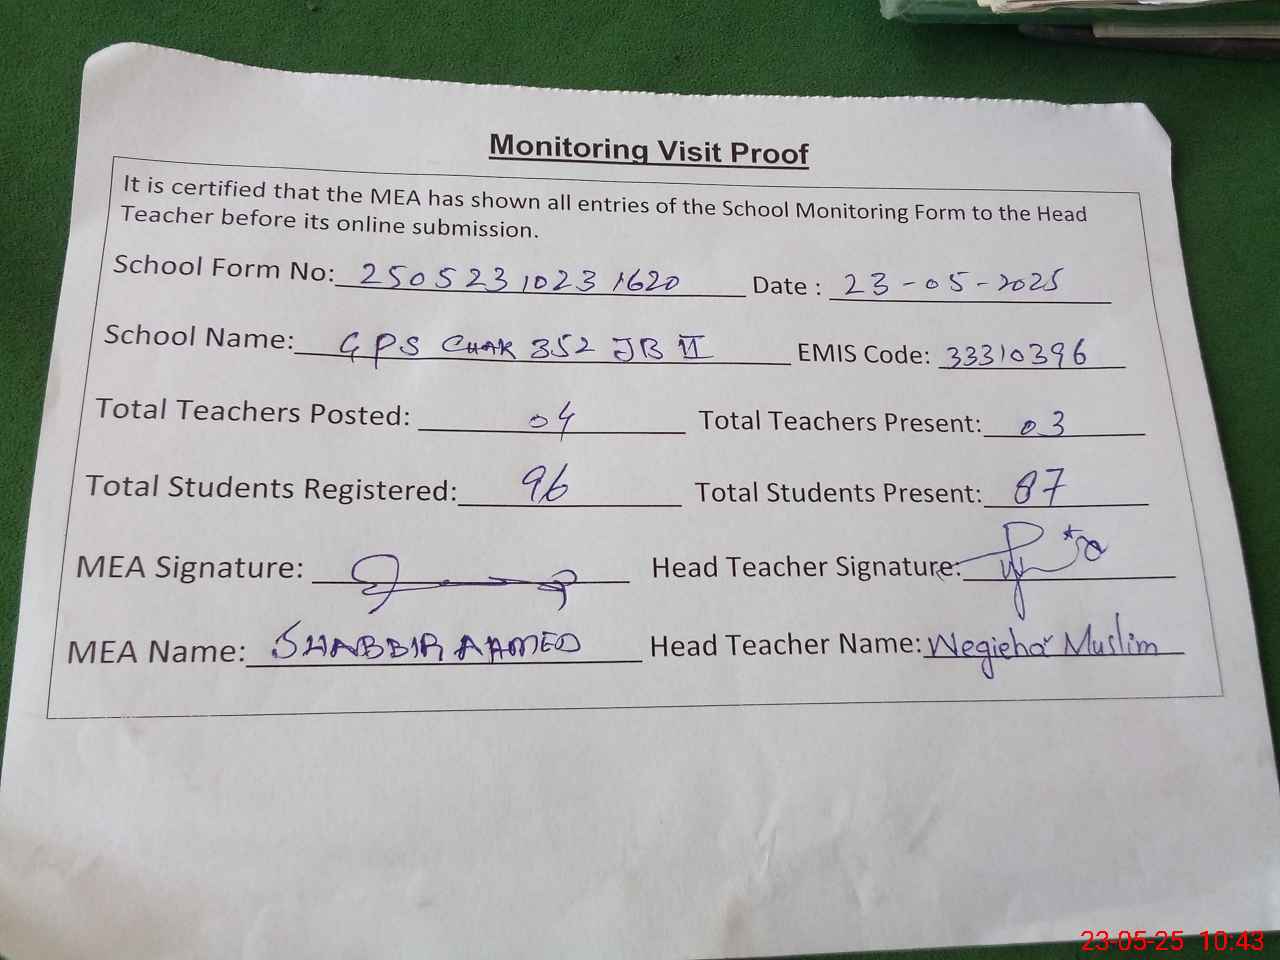 Monitoring Visit Proof
It is certified that the MEA has shown all entries of the School Monitoring Form to the Head
Teacher before its online submission.
School Form No: 25052310231620 Date : 23-05-2025
School Name: GPS CHAK 352 JB II EMIS Code: 33310396
Total Teachers Posted: 04 Total Teachers Present: 03
Total Students Registered: 96 Total Students Present: 87
MEA Signature: Head Teacher Signature:
MEA Name: SHABBIR AHMED Head Teacher Name: Muslim
23-05-25 10:43